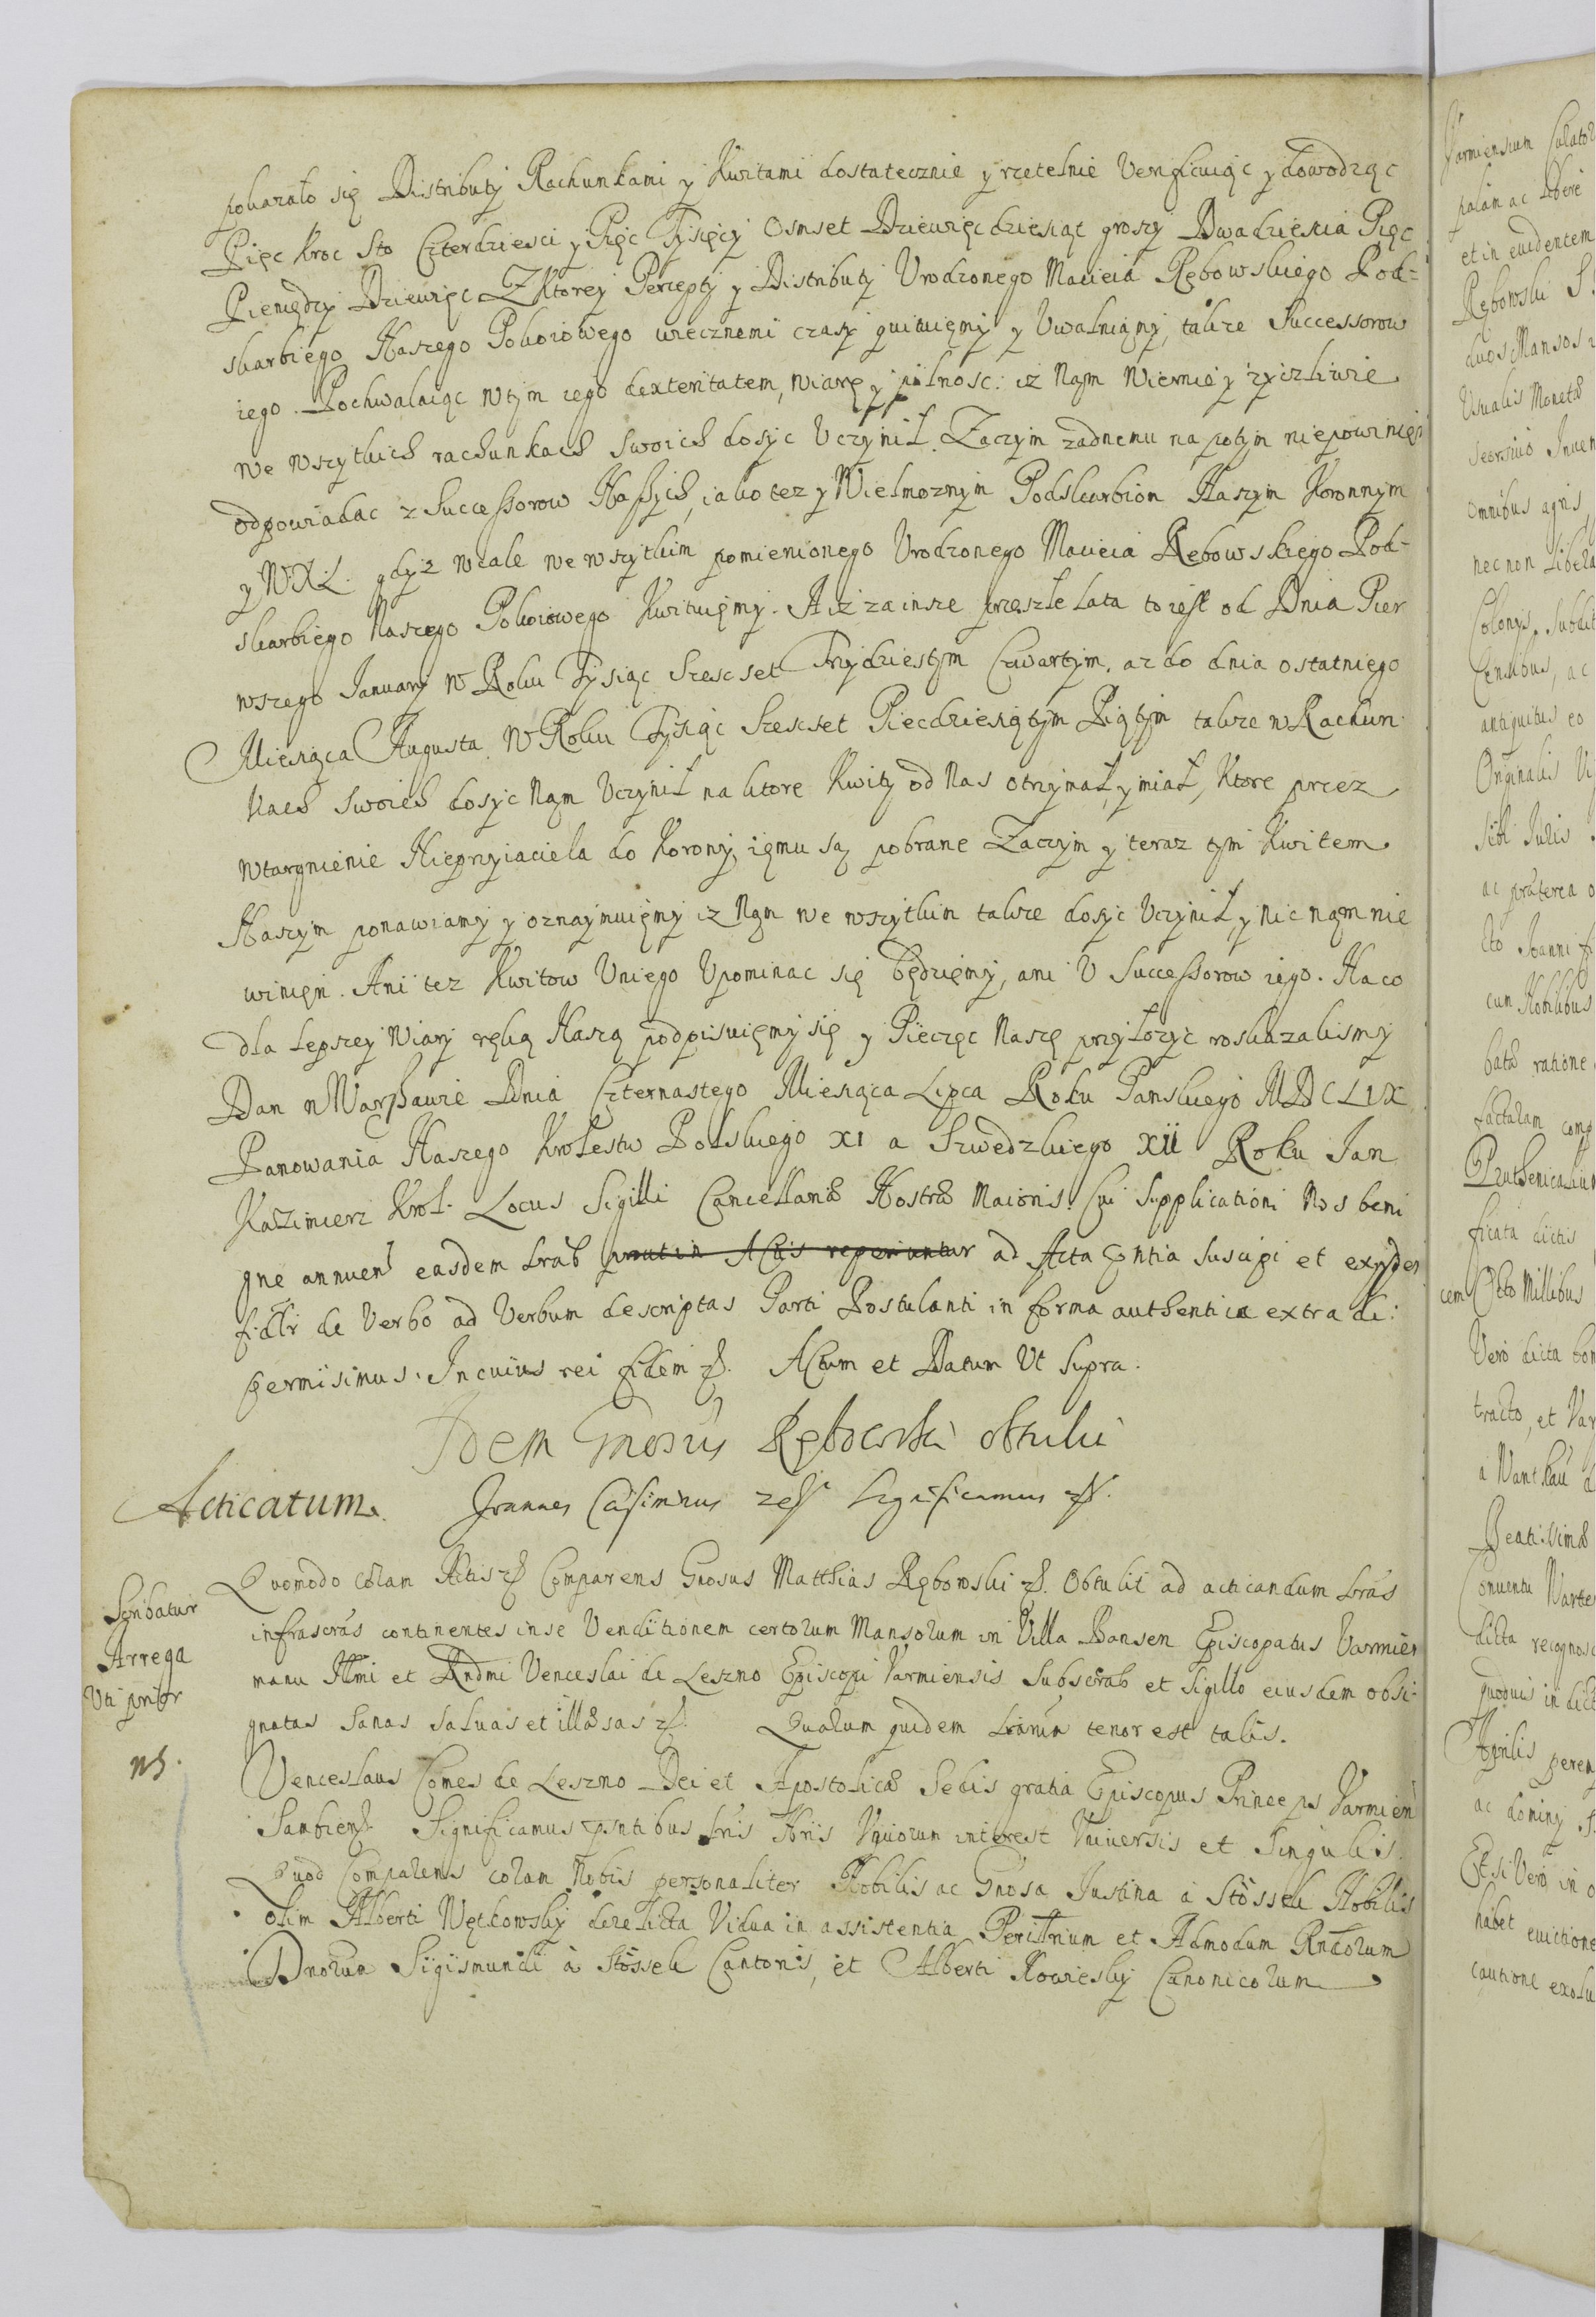 pokazało się Distributy Rachunkami y Kwitami dostatecznie y rzetelnie Verificuiąc y dowodząc
Pięc kroc sto Czterdziesci y Pięc Tysięcy Osmset Dziewięcdziesiąt groszy Dwadziescia Pięc
Pieniędzy Dziewięc Z Ktorey Percepty y Distributy Urodzonego Macieia Rębowskiego Pod-
skarbiego Naszego Pokoiowego wiecznemi czasy quituięmy y Uwalniąmy, takze Successorow
iego. Pochwalaiąc w tym iego dexteritatem, wiarę y pilnosc: iz Nąm Wiernie y zyczliwie
we wszytkich rachunkach swoich dosyc Uczynił. Zaczym zadnemu na potym niepowinięn
odpowiadac z Successorow Naszych, iako tez y Wielmoznym Podskarbiom Naszym Koronnym
y W.X.L. gdyz wcale we wszytkim pomienionego Urodzonego Macieia Rębowskiego Pod-
skarbiego Naszego Pokoiowego Kwituięmy. A iz za insze przeszłe lata to iest od Dnia Pier
wszego January w Roku Tysiąc Szescset Trzydziestym Czwartym, az do dnia ostatniego
Miesiąca Augusta w Roku Tysiąc Szescset Piecdziesiątym Piątym takze w Rachun
kach swoich dosyc Nąm Uczynił na ktore Kwity od Nas otrzymał, y miał, ktore przez
wtargnienie Nieprzyiaciela do Korony, ięmu są pobrane Zaczym y teraz tym Kwitem
Naszym ponawiamy y oznaymuięmy iz Nąm we wszytkim takze dosyc Uczynił, y nic nąm nie
winięn. Ani tez Kwitow Uniego Upominac się będzięmy, ani U Successorow iego. Na co
dla lepszey Wiary ręką Naszą podpisuięmy się y Pieczęc Naszę przyłozyc roskazalismy
Dan w Warszawie Dnia Czternastego Miesiąca Lipca Roku Panskiego MDCLIX
Panowania Naszego Krolestw Polskiego XI a Szwedzkiego XII Roku Jan
Kazimierz Krol. Locus Sigilli Cancellariæ Nostræ Maioris. Cui Supplicationi Nos beni
gne annuen easdem Lras prout in Actis reperiuntur ad Acta Pntia Suscipi et exinde
fidelr de Verbo ad Verbum descriptas Parti Postulanti in forma authentica extradi:
permisimus. In cuius rei fidem. Actum et Datum Ut Supra.
Idem Gnosus Rębowski obtulit
Acticatum. Joannes Casimirus Significamus
Quomodo coram Actis Comparens Gnosus Matthias Rębowski. Obtulit ad acticandum Lras
Scribatur
Arrega
Uti prior
NB.
infrascras continentes in se Venditionem certorum Mansorum in Villa Dansen Episcopatus Varmien
manu Illmi et Rndmi Venceslai de Leszno Episcopi Varmiensis Subscrab et Sigillo eiusdem obsi-
gnatas Sanas Saluas et illæsas. Quarum quidem Lrarum tenor est talis.
Venceslaus Comes de Leszno Dei et Apostolicæ Sedis gratia Episcopus Princeps Varmien
Sambien. Significamus Pntibus Lris Nris Quorum interest Universis et Singulis.
Quod Comparens coram Nobis personaliter Nobilis ac Gnosa Justina à Stössel Nobilis
olim Alberti Wętkowsky derelicta Vidua in assistentia Perillrium et Admodum Rndorum
Dnorum Sigismundi à Stössel Cantoris, et Alberti Nowiesky Canonicorum
Varmiensium
palàm ac liberè
et in euidentem
Rębowski
duos Mansos
Usualis Monetæ
omnibus agris,
nec non
Colonys,
Censibus, ac
antiquitus eo
Originalis
sibi Juris
ac præterea
cum Nobilibus
ratione
factaram
ficata dictis
cem Octo Millibus
Vero dicta
tracto, et
Beatissimæ
Conuentu
dicta
quouis in
Aprilis
ac
Et si Vero in
habet euictione
cautione